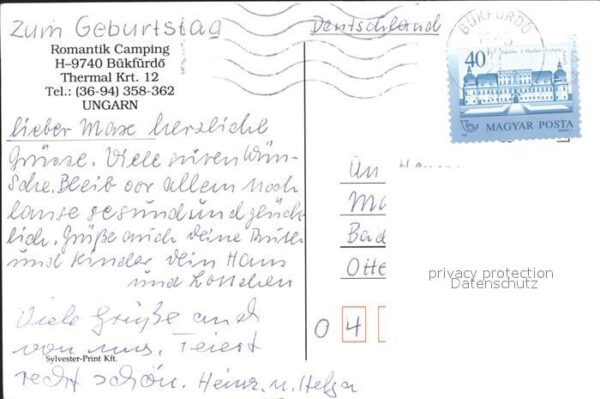 zum Geburtstag
Deutschland
BÜKFÜRDŐ
Romantik Camping
H-9740 Bükfürdő
Thermal Krt. 12
Tel.: (36-94) 358-362
UNGARN
40
MAGYAR POSTA
lieber Max herzliche
Grüsse. Viele Wün-
sche. Bleib vor allem noch
lange gesund und glück-
lich. Grüße auch deine
und Kinder dein Hans
und Lottchen
An
Ma
Bad
Otte
privacy protection
Datenschutz
0 4
Viele Grüße auch
von uns. Feiert
Sylvester-Print Kft.
recht schön. Heinz u. Helga